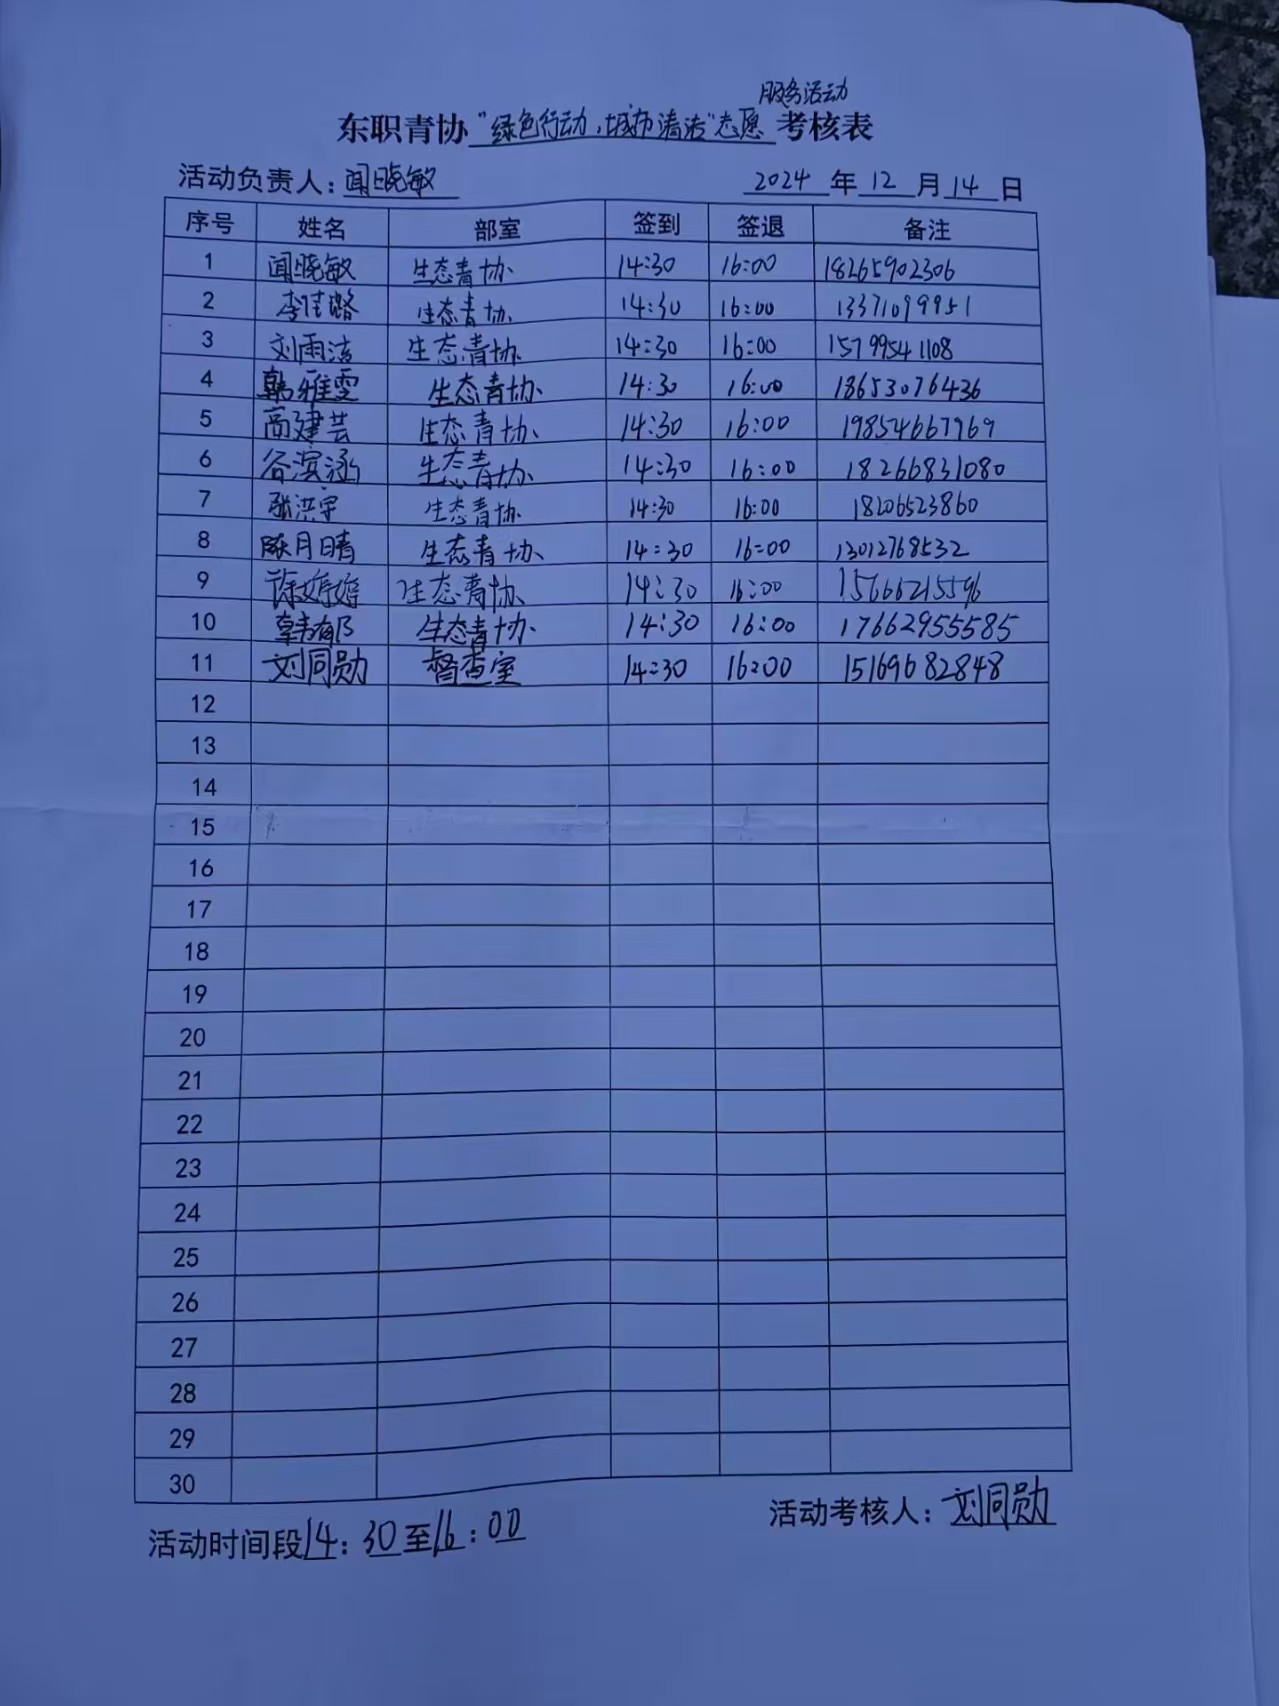 服务活动
东职青协“绿色行动，城市清洁”志愿考核表
活动负责人：闻晓敏 2024年12月14日
序号 姓名 部室 签到 签退 备注
1 闻晓敏 生态青协 14:30 16:00 18265902306
2 李佳璐 生态青协 14:30 16:00 13371099951
3 刘雨洁 生态青协 14:30 16:00 15799541108
4 韩雅雯 生态青协 14:30 16:00 18653076436
5 高建芸 生态青协 14:30 16:00 19854667969
6 谷滨涵 生态青协 14:30 16:00 18266831080
7 张洪宇 生态青协 14:30 16:00 18206523860
8 陈月晴 生态青协 14:30 16:00 13012768532
9 徐婷婷 生态青协 14:30 16:00 15666215596
10 韩郁 生态青协 14:30 16:00 17662955585
11 刘同勋 督查室 14:30 16:00 15169682848
12
13
14
15
16
17
18
19
20
21
22
23
24
25
26
27
28
29
30
活动时间段14：30至16：00 活动考核人：刘同勋